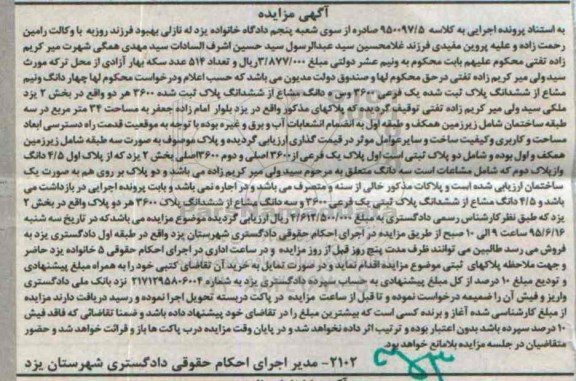 آگهی مزایده
به استناد پرونده اجرایی به کلاسه ۹۵۰۰۹۷/۵ صادره از سوی شعبه پنجم دادگاه خانواده یزد له نازلی بهبود فرزند روزبه با وکالت رامین
رحمت زاده و علیه پروین مفیدی فرزند غلامحسین سید عبدالرسول سید حسین اشرف السادات سید مهدی همگی شهرت میر کریم
زاده تفتی محکوم علیهم بابت محکوم به ونیم عشر دولتی مبلغ ۳/۸۷۷/۰۰۰ ریال و تعداد ۵۱۴ عدد سکه بهار آزادی از محل ترکه مورث
سید ولی میر کریم زاده تفتی در حق محکوم لها و صندوق دولت مدیون می باشد که حسب اعلام ودرخواست محکوم لها چهار دانگ ونیم
مشاع از ششدانگ پلاک ثبت شده یک فرعی ۳۶۰۰ وسه دانگ مشاع از ششدانگ پلاک ثبت شده ۳۶۰۰ هر دو واقع در بخش ۲ یزد
ملکی سید ولی میر کریم زاده تفتی توقیف گردیده که پلاکهای مذکور واقع در یزد بلوار امام زاده جعفر به مساحت ۳۴ متر مربع در سه
طبقه ساختمان شامل زیرزمین همکف و طبقه اول به انضمام انشعابات آب و برق و غیره بوده با توجه به موقعیت قدمت راه دسترسی ابعاد
مساحت و کاربری وکیفیت ساخت و سایر عوامل موثر در قیمت گذاری ارزیابی گردیده و پلاک موصوف به صورت سه طبقه شامل زیرزمین
همکف و اول بوده و شامل دو پلاک ثبتی است اول پلاک یک فرعی از ۳۶۰۰ اصلی و دوم ۳۶۰۰ اصلی بخش ۲ یزد که از پلاک اول ۴/۵ دانگ
واز پلاک دوم که شامل مشاعات است سه دانگ متعلق به مرحوم سید ولی میر کریم زاده می باشد و دو پلاک بر روی هم به صورت یک
ساختمان ارزیابی شده است و پلاکات مذکور خالی از سنه و متصرف می باشد و در اجاره نمی باشد و بابت پرونده اجرایی در بازداشت می
باشد و ۴/۵ دانگ مشاع از ششدانگ پلاک ثبتی یک فرعی ۳۶۰۰ و سه دانگ مشاع از ششدانگ پلاک ۳۶۰۰ هر دو پلاک واقع در بخش ۲
یزد که طبق نظر کارشناس رسمی دادگستری به مبلغ ۴/۶۱۲/۵۰۰/۰۰۰ ریال ارزیابی گردیده موضوع مزایده می باشد که در تاریخ سه شنبه
۹۵/۶/۱۶ ساعت ۹ الی ۱۰ صبح از طریق مزایده در اجرای احکام حقوقی دادگستری شهرستان یزد واقع در طبقه اول دادگستری یزد به
فروش می رسد طالبین می توانند ظرف مدت پنج روز قبل از روز مزایده و در ساعت اداری در اجرای احکام حقوقی ۵ خانواده یزد حاضر
و جهت ملاحظه پلاکهای ثبتی موضوع مزایده اقدام نماید و در صورت تمایل به خرید آن تقاضای کتبی خود را به همراه مبلغ پیشنهادی
و تودیع مبلغ ۱۰ درصد از کل مبلغ پیشنهادی به حساب سپرده دادگستری یزد به شماره ۲۱۷۱۲۹۵۸۰۶۰۰۴ نزد بانک ملی دادگستری
واریز و فیش آن را ضمیمه درخواست نموده و تا قبل از ساعت مزایده در پاکت دربسته تحویل اجرا نموده و رسید دریافت دارند مزایده
از مبلغ کارشناسی شده آغاز و برنده کسی است که بیشترین مبلغ را در تقاضای خود پیشنهاد داده باشد و ضمنا تقاضائی که فاقد فیش
۱۰ درصد سپرده باشد بدون اعتبار بوده و ترتیب اثر داده نخواهد شد و در پایان وقت مزایده درب پاکت ها باز و قرائت خواهد شد و حضور
متقاضیان در جلسه مزایده بلامانع خواهد بود.
۲۱۰۲- مدیر اجرای احکام حقوقی دادگستری شهرستان یزد